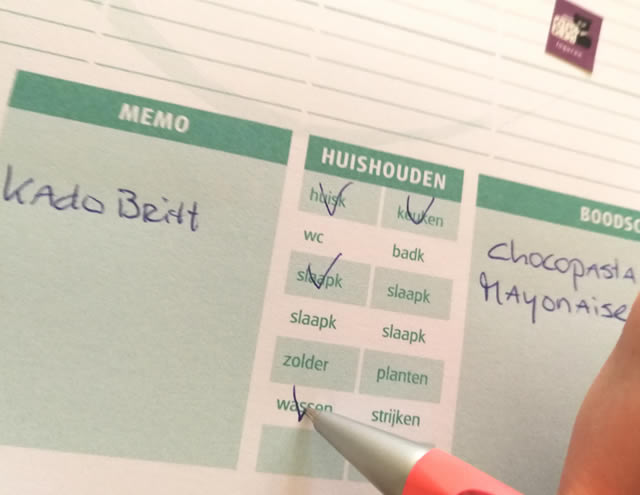 MEMO
KAdo Britt
HUISHOUDEN
huisk keuken
wc badk
slaapk slaapk
slaapk slaapk
zolder planten
wassen strijken
BOODSC
Chocopasta
MAyonaise